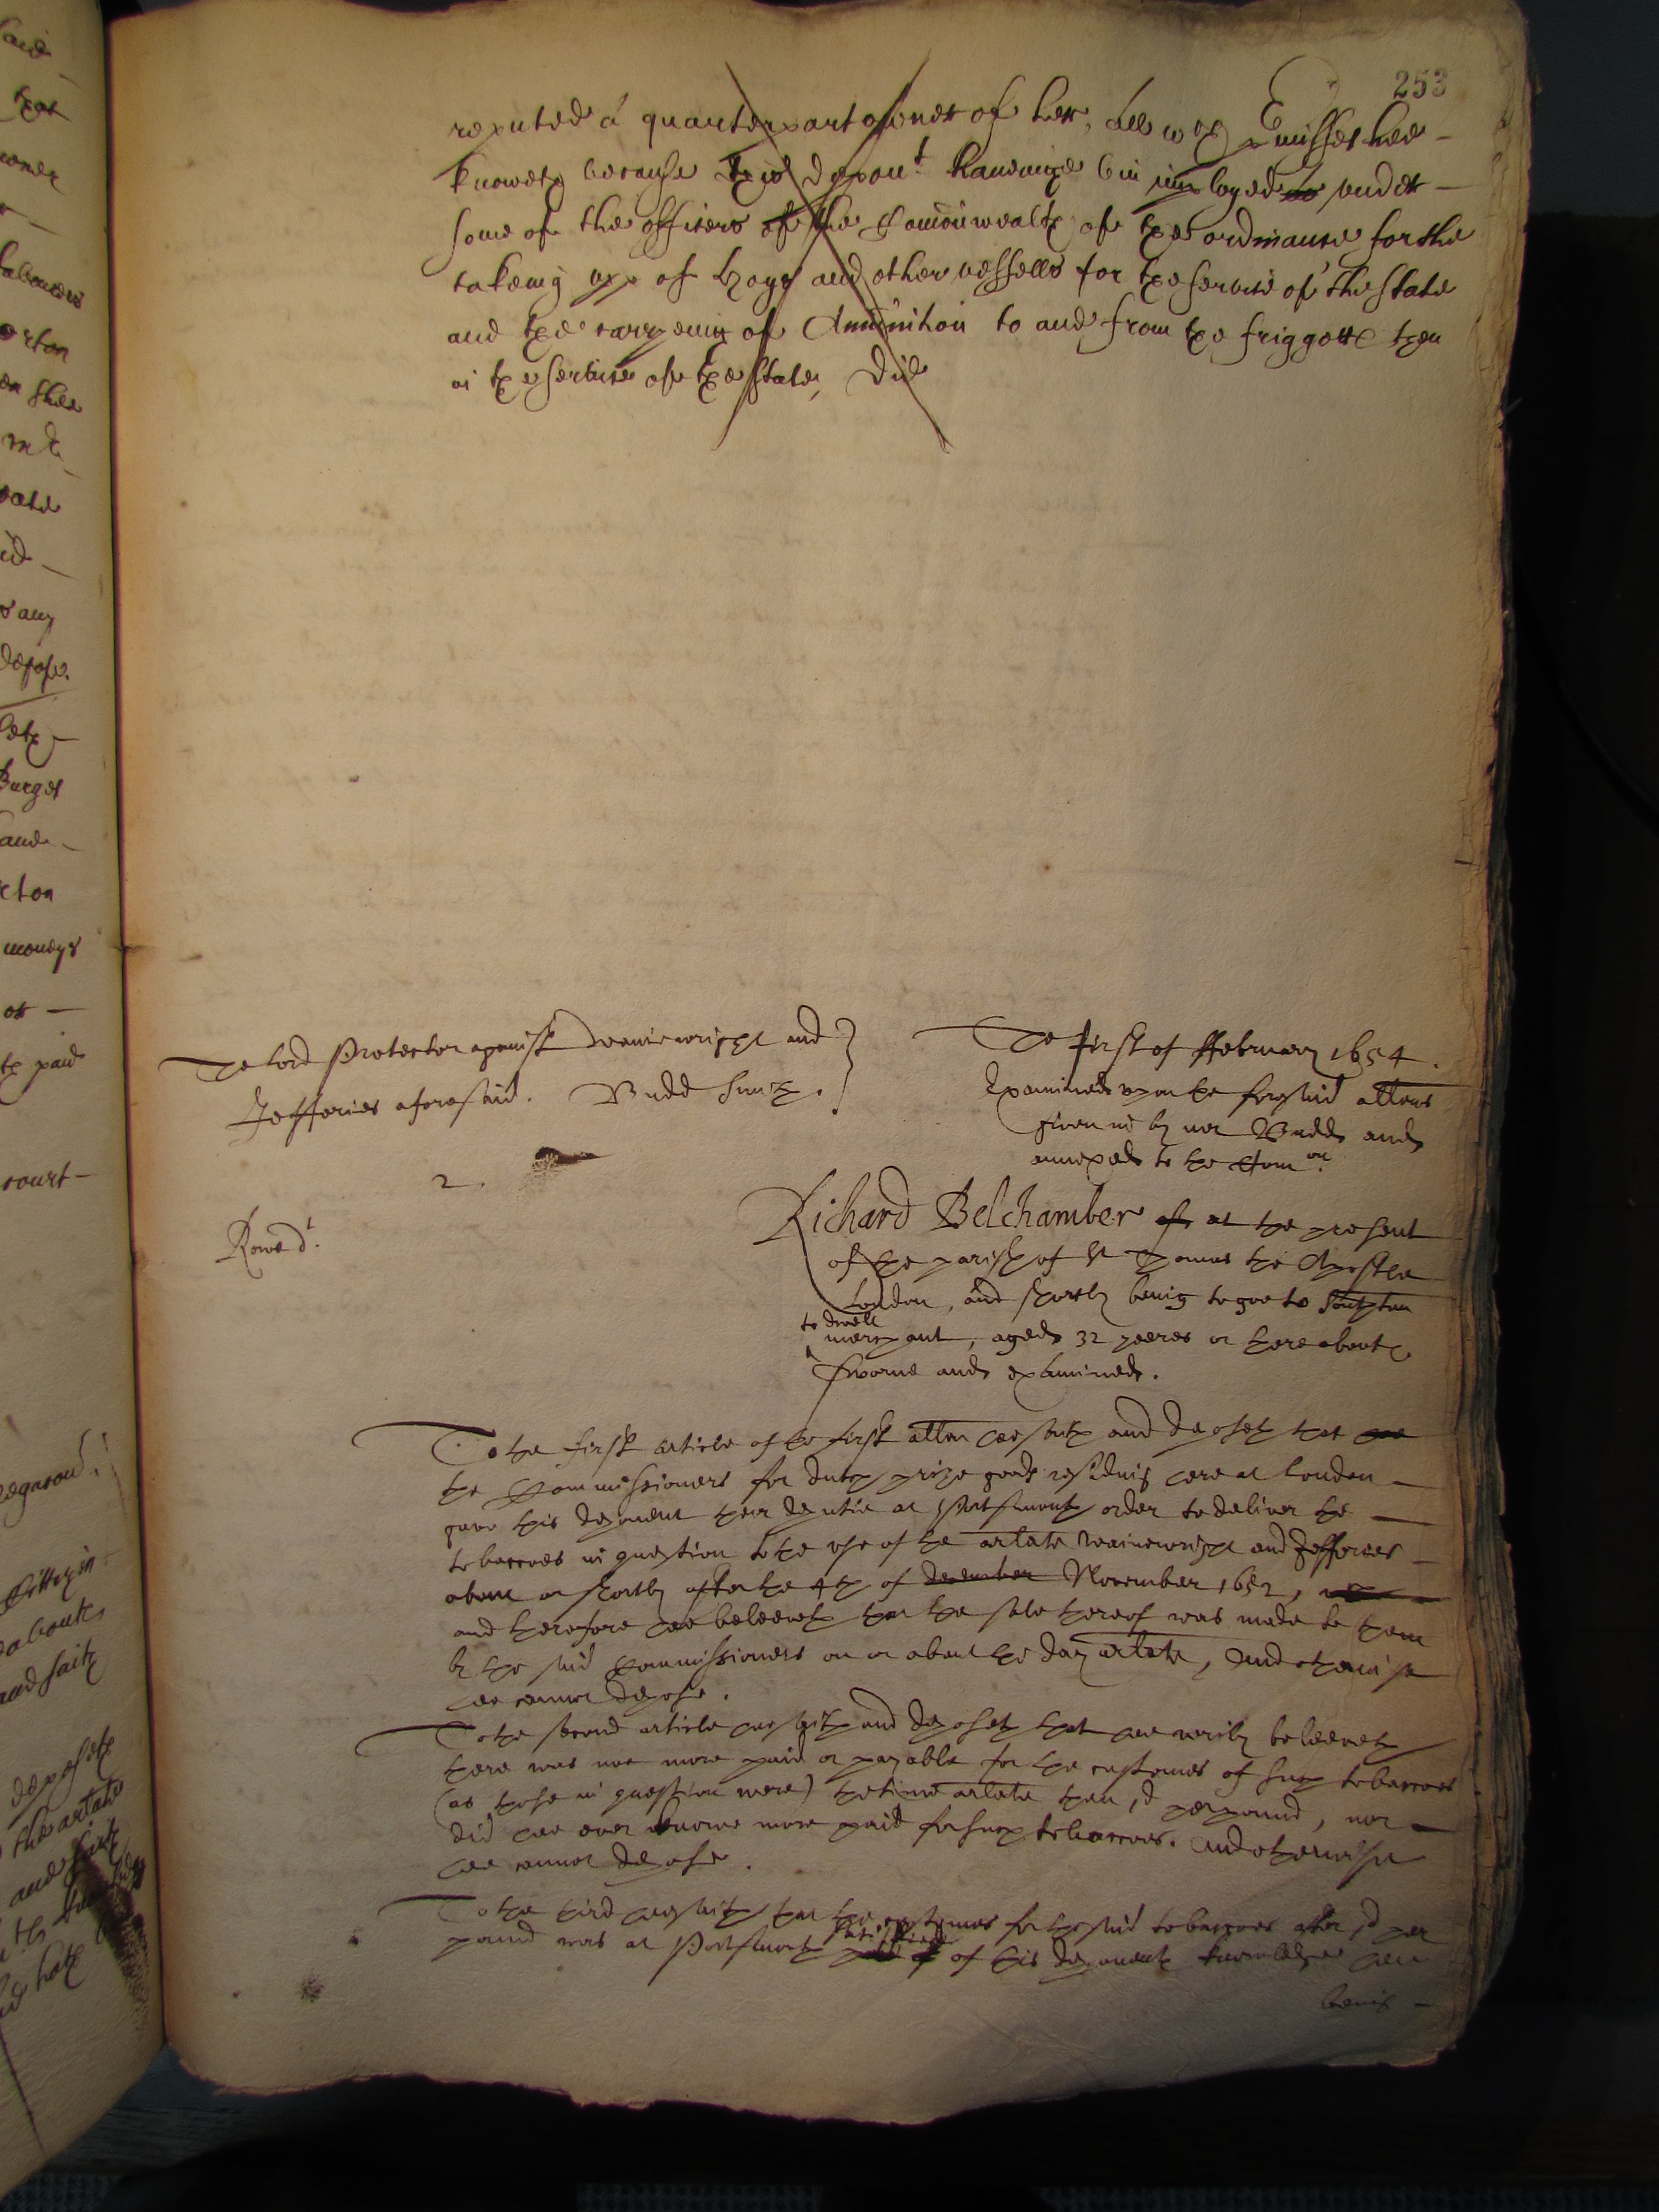 253
reputed a quarter part owner of her, All wch premisses hee
knoweth because this depont haveinge bin imployed to under
some of the officers of the Comonwealth of the ordinance for the
takeing upp of hoys and other vessells for the service of the State
and the carryeing of Amunition to and from the friggotts then
in the service of the State, Did
The Lord Protector against Wainewright and
Jefferies aforesaid. Budd Smith.
The first of ffebruary 1654.
Examined upon the foresaid allens
given in by mr Budd and
annexed to the Comon.
2.
Rowe dt.
Richard Belchamber of at the present
of the parish of St Thomas the Apostle
London, and shortly being to goe to Southton
to dwell
merchant, aged 32 yeeres or thereabouts
sworne and examined.
To the first article of the first allon hee saith and deposeth that hee
the Commissioners for dutch prize goods residing here at London
gave this deponent their deputie at Portsmouth order to deliver the
tobaccoes in question to the use of the arlate Wainewright and Jefferies
about or shortly after the 4th of december November 1652,
and therefore hee beleeveth that the sale thereof was made to them
by the said Commissioners on or about the day arlate, And otherwise
hee cannot depose.
To the second article hee saith and deposeth that hee verily beleeveth
there was not more paid or payable for the customes of such tobaccoes
(as those in question were) the time arlate then 1d per pound, nor
did hee ever knowe more paid for such tobaccoes. And otherwise
hee cannot depose.
To the third hee saith that the customes for the said tobaccoes after 1d per
satisfied
pound was at Portsmouth paid of of this deponents knowledge hee
being